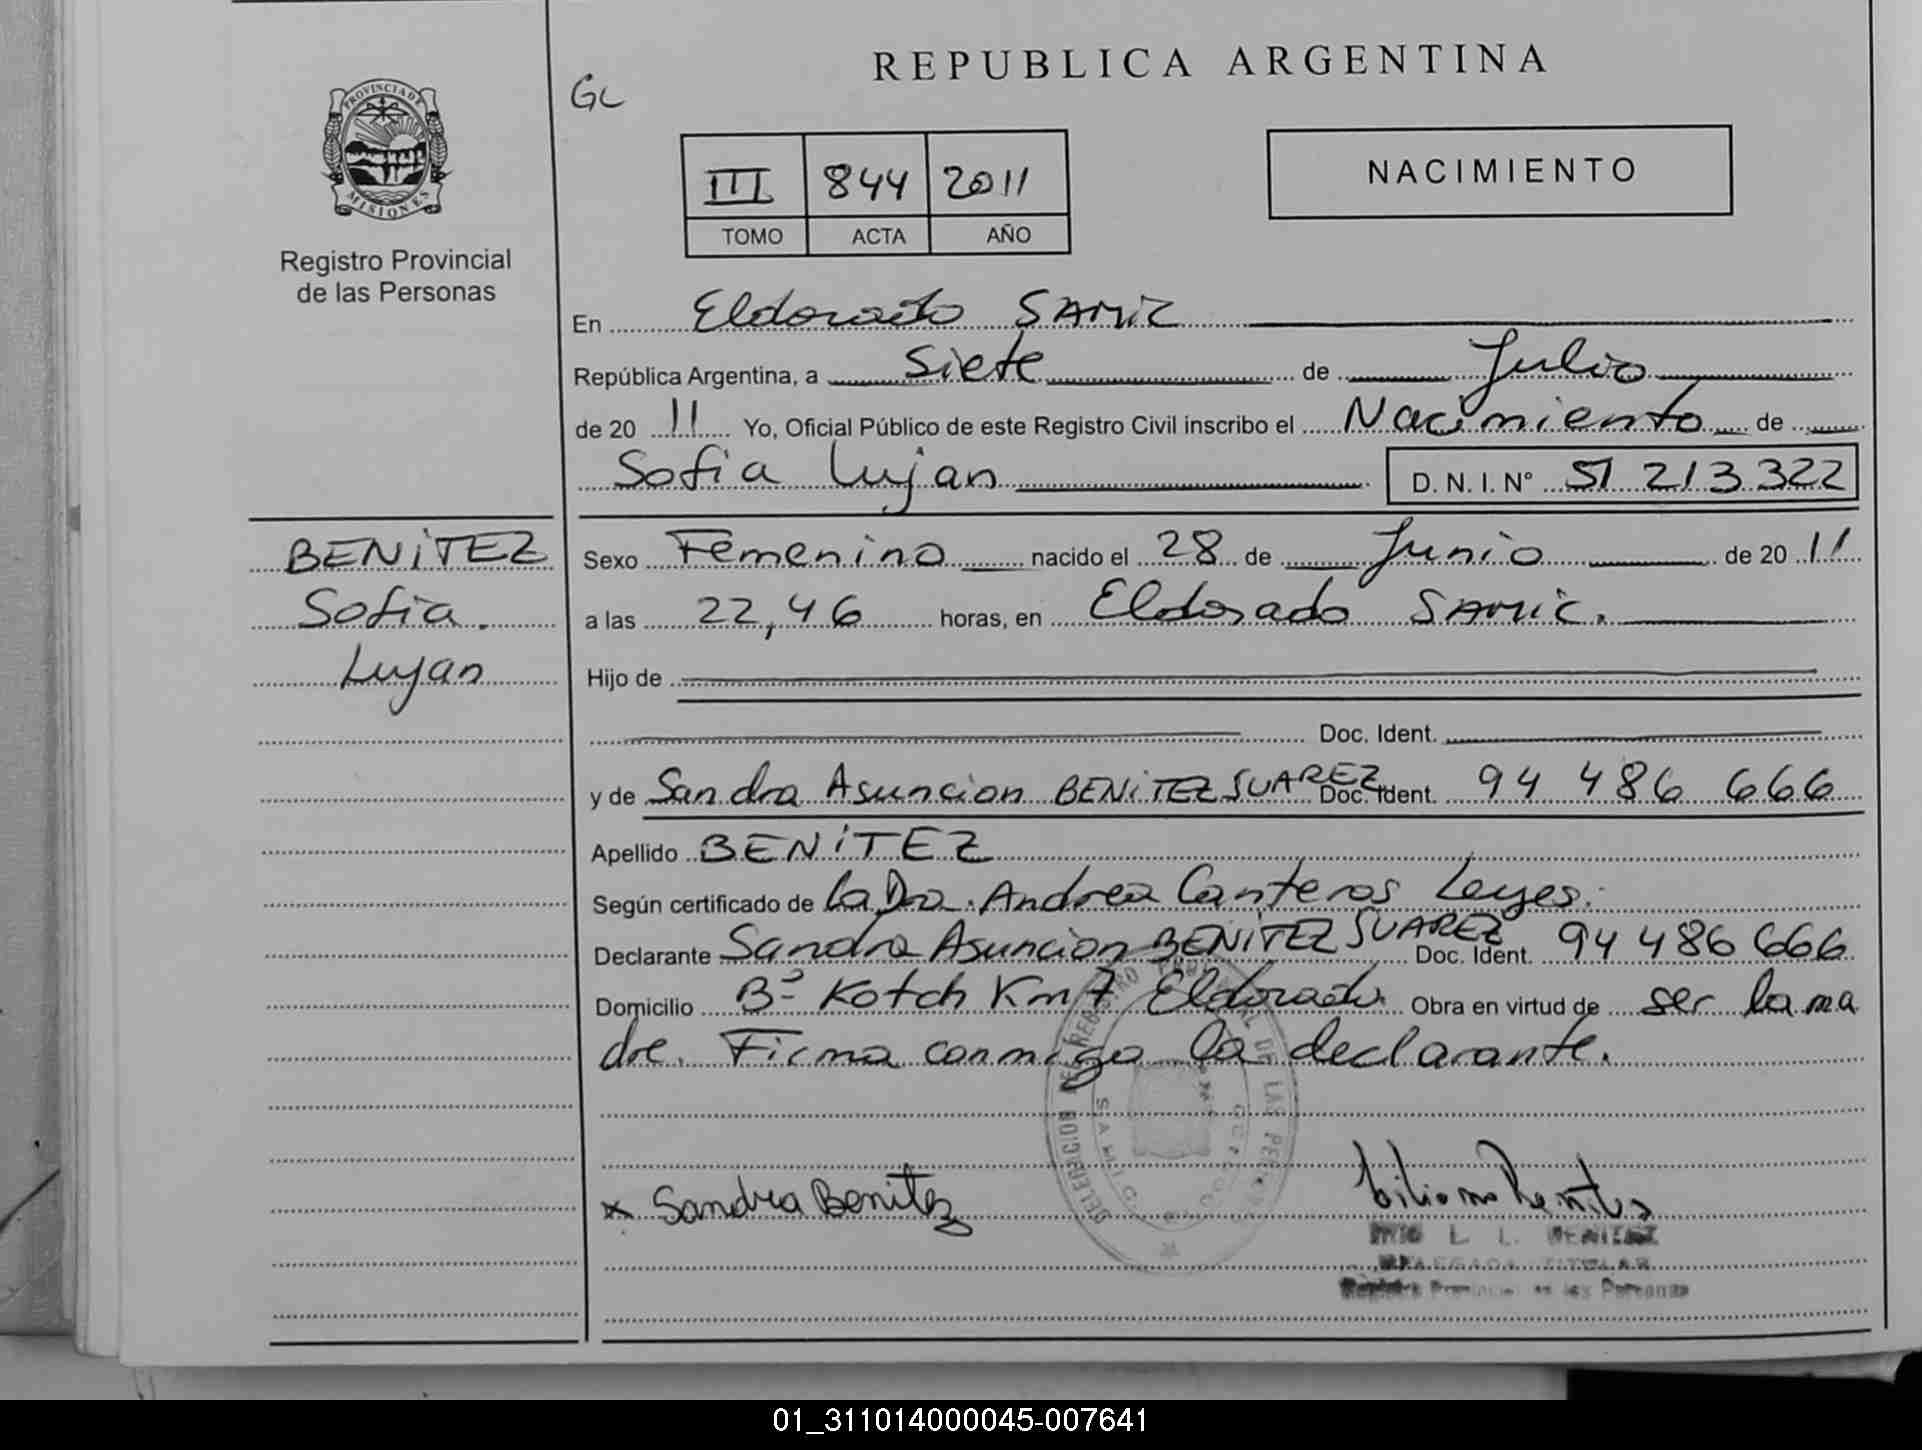 REPUBLICA ARGENTINA
GL
PROVINCIA DE
MISIONES
Registro Provincial
de las Personas
III 844 2011
TOMO ACTA AÑO
NACIMIENTO
En Eldorado SAMIC
República Argentina, a Siete de Julio
de 20 11 Yo, Oficial Público de este Registro Civil inscribo el Nacimiento de
Sofia Lujan D. N. I. N° 51 213 322
BENITEZ
Sofia.
Lujan
Sexo Femenino nacido el 28 de Junio de 20 11
a las 22,46 horas, en Eldorado SAMIC.
Hijo de
Doc. Ident.
y de Sandra Asuncion BENITEZ SUAREZ Doc. Ident. 94 486 666
Apellido BENITEZ
Según certificado de la Dra. Andrea Canteros Leyes.
Declarante Sandra Asuncion BENITEZ SUAREZ Doc. Ident. 94 486 666
Domicilio Bº Kotch Km 7 Eldorado. Obra en virtud de ser la ma
dre. Firma conmigo la declarante.
x Sandra Benitez
L. L. BENITEZ
DELEGADA TITULAR
Registro Provincial de las Personas
01_311014000045-007641